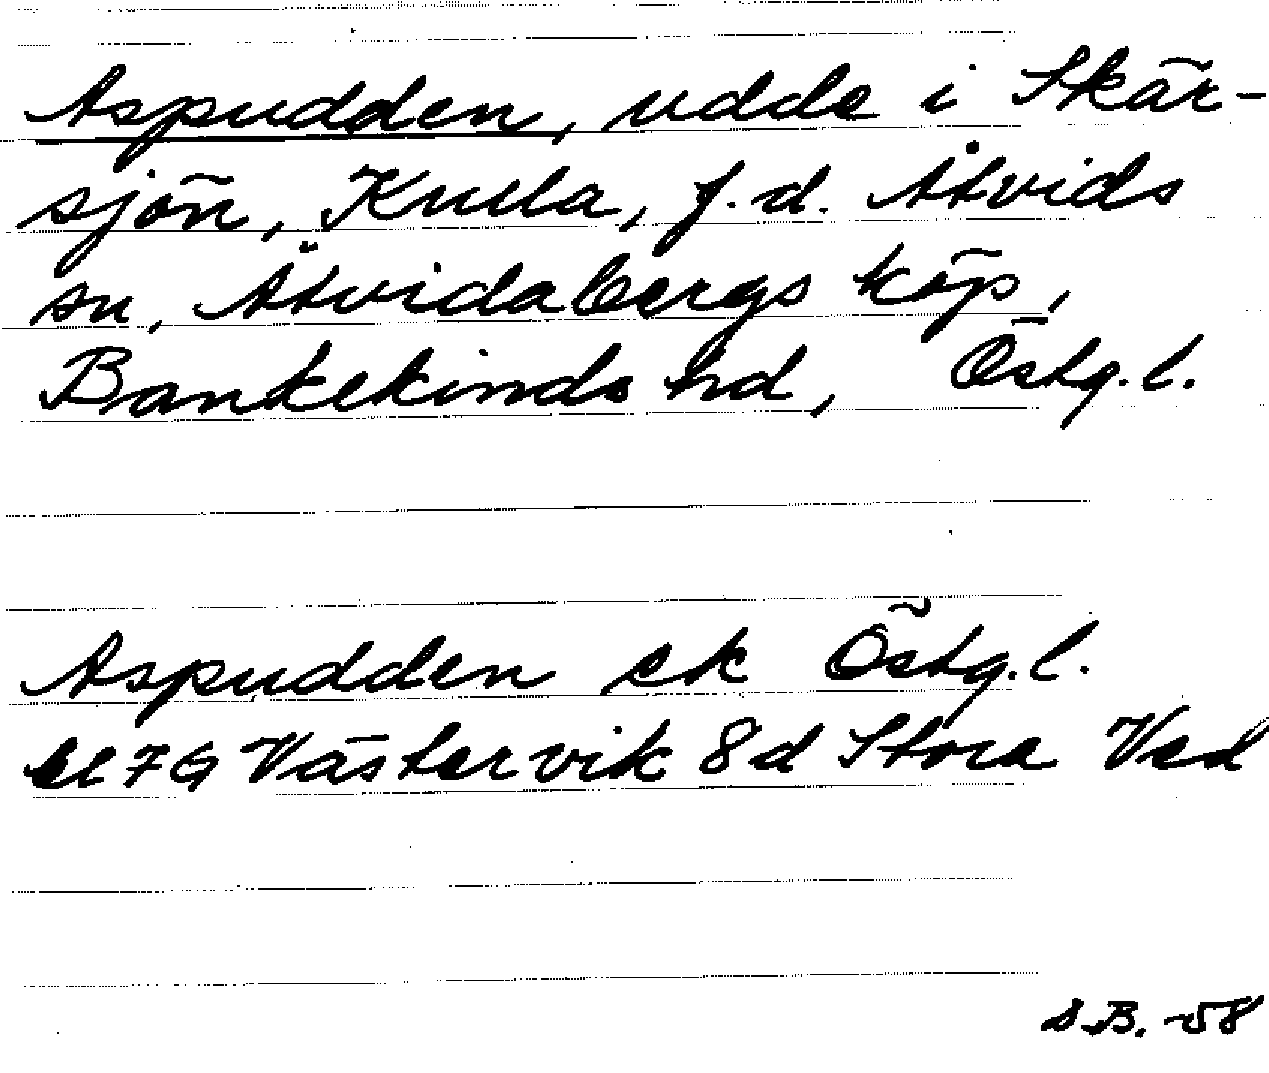 Aspudden, udde i Skär-
sjön, Kulla, f.d. Åtvids
sn, Åtvidabergs köp,
Bankekinds hd, Östg.l.
Aspudden ek Östg.l.
bl 7G Västervik 8d Stora Ved
S.B. -58